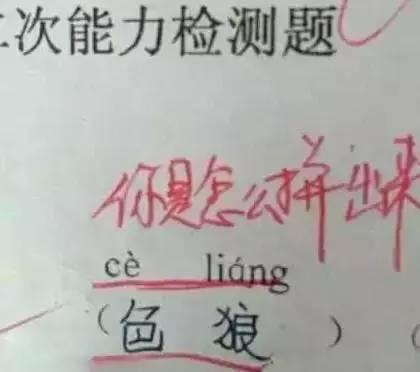 次能力检测题
你是怎么拼出来
cè liáng
（色 狼 ）（